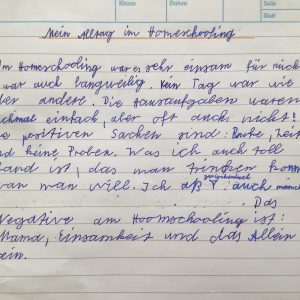 Klasse Datum Seite
Blatt
Mein Alltag im Homeschooling
Im Homeschooling war es sehr einsam für mich
war auch langweilig. Kein Tag war wie
der andere. Die Hausaufgaben waren
manchmal einfach, aber oft auch nicht!
positiven Sachen sind: Ruhe, Zeit
und keine Proben. Was ich auch toll
fand ist, das man trinken konn
wan man will. Ich aß zwischendurch auch manch
Das
Negative am Hoomschooling ist:
Mama, Einsamkeit und das Allein
sein.